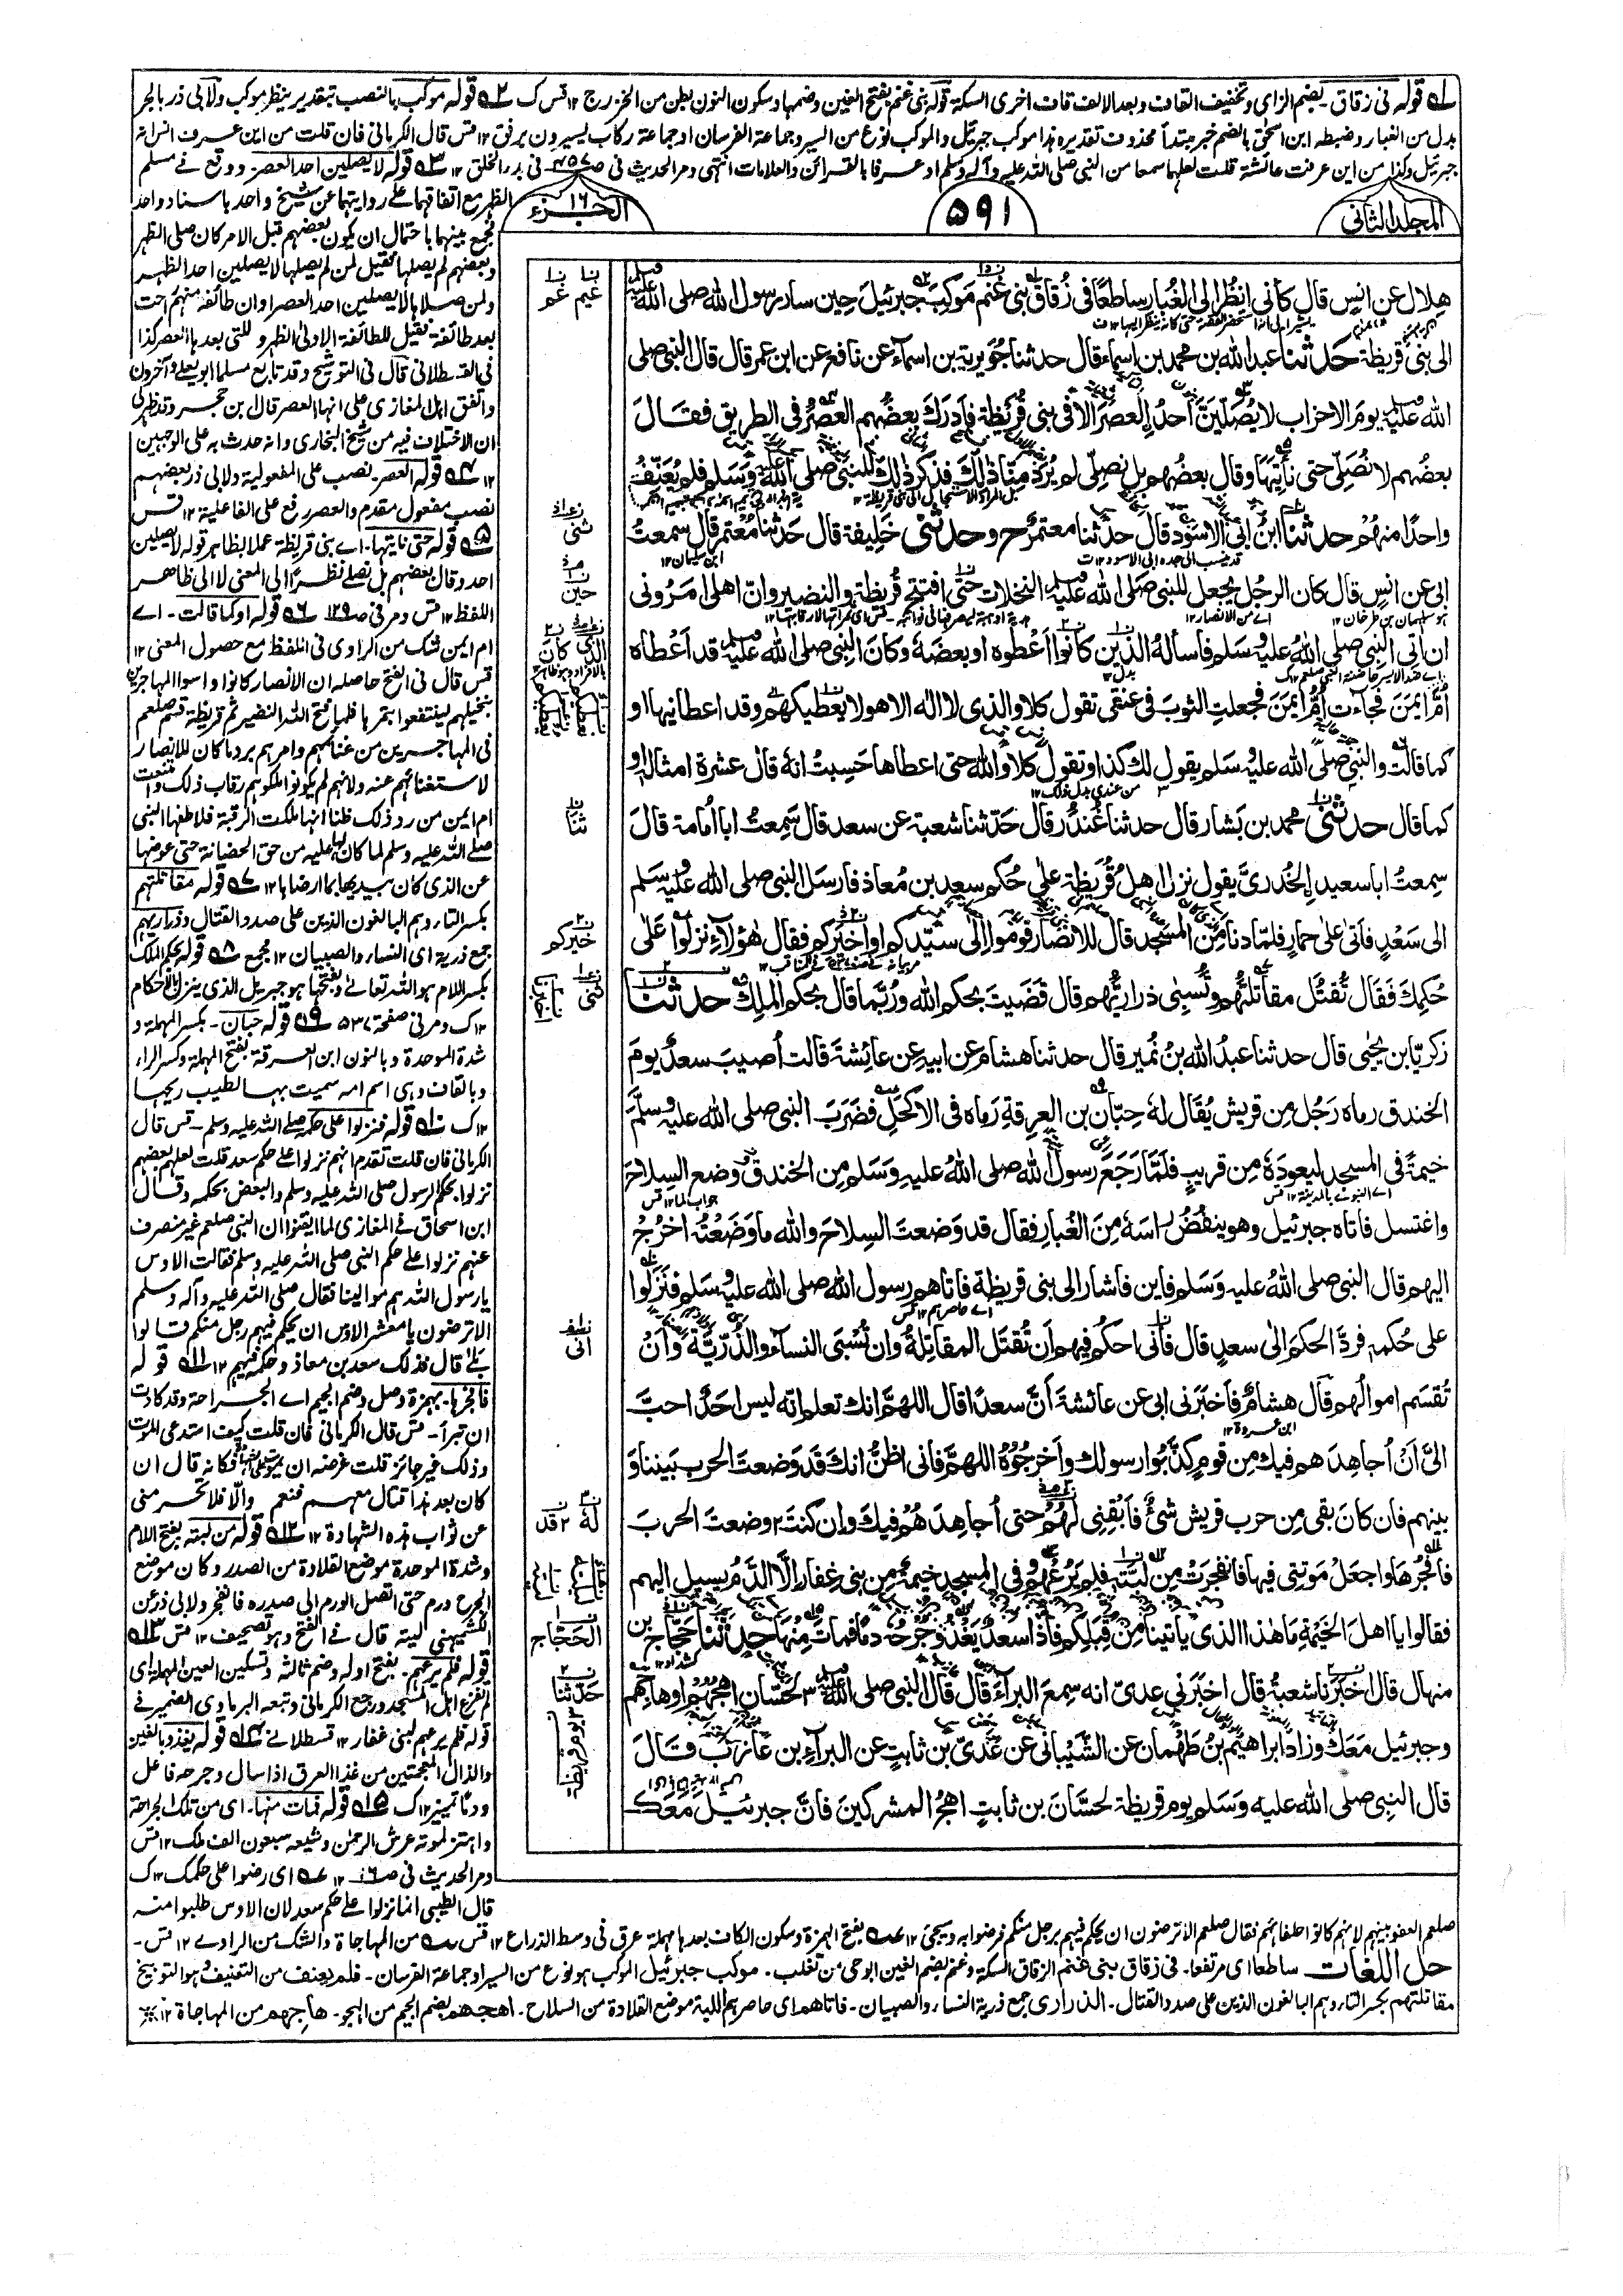 ۱ قوله فی زقاق۔ بضم الزای وتخفیف القاف وبعد الالف قاف اخری السکة قوله بنی غنم بفتح الغین وضمها وسکون النون بطن من الخزرج ۱۲ قس ک ۲ قوله موکب بالنصب بتقدیر ینظر موکب ولابی ذر بالجر
بدل من الغبار وضبطه ابن اسحٰق بالضم خبر مبتدأ محذوف تقدیره هذا موکب جبرئیل والموکب نوع من السیر وجماعة الفرسان او جماعة رکاب یسیرون برفق ۱۲ قس قال الکرمانی فان قلت من این عرف انس انه
جبرئیل وکذا من این عرفت عائشة قلت لعلهما سمعا من النبی صلی الله علیه وآله وسلم او عرفا بالقرائن والعلامات انتهی ومر الحدیث فی ص۴۵۷ فی بدء الخلق ۱۲ ۳ قوله لا یصلین احد العصر ووقع فی مسلم
المجلد الثانی
۵۹۱
الجزء ۱۶
هلال عن انس قال کأنی انظر الی الغبار ساطعًا فی زُقاق بنی غنم موکبَ جبرئیلَ حین سار رسول الله صلی الله علیه وسلم
الی بنی قریظة حدثنا عبد الله بن محمد بن اسماء قال حدثنا جُویریة بن اسمآء عن نافع عن ابن عمر قال قال النبی صلی
الله علیه وسلم یوم الاحزاب لا یُصلّینَّ احدٌ العصرَ الا فی بنی قریظة فادرك بعضُهم العصرَ فی الطریق فقال
بعضُهم لا نُصلّی حتی نأتیَها وقال بعضُهم بل نصلّی لم یُرِدْ منّا ذلك فذُکر ذلك للنبی صلی الله علیه وسلم فلم یُعنّف
واحدًا منهم حدثنا ابنُ ابی الاسود قال حدثنا معتمر ح وحدثنی خلیفة قال حدثنا معتمر قال سمعت
ابی عن انس قال کان الرجل یجعل للنبی صلی الله علیه وسلم النخلات حتی افتتح قُریظة والنضیر وانّ اهلی امرونی
ان اٰتی النبی صلی الله علیه وسلم فأسألهُ الذین کانوا اعطوه او بعضهٗ وکان النبی صلی الله علیه وسلم قد اعطاه
امَّ ایمن فجآءت امُّ ایمن فجعلت الثوب فی عنقی تقول کلا والذی لا اله الا هو لا یعطیکهم وقد اعطانیها او
کما قالت والنبی صلی الله علیه وسلم یقول لك کذا وتقول کلا والله حتی اعطاها حسبتُ انهٗ قال عشرة امثاله او
کما قال حدثنی محمد بن بشار قال حدثنا غُندر قال حدّثنا شعبة عن سعد قال سمعتُ ابا اُمامة قال
سمعتُ ابا سعید الخُدری یقول نزل اهلُ قُریظة علی حُکم سعد بن معاذ فارسل النبی صلی الله علیه وسلم
الی سعد فاتی علی حمار فلمّا دنا من المسجد قال للانصار قوموا الی سیّدکم او اخیرکم فقال هٰؤلاء نزلوا علی
حُکمك فقال تُقتل مقاتلتُهم وتُسبی ذراریُّهم قال قضیتَ بحکم الله ورُبّما قال بحکم الملك حدثنا
زکریا بن یحیی قال حدثنا عبدُ الله بنُ نمیر قال حدثنا هشام عن ابیه عن عائشة قالت اُصیب سعدٌ یومَ
الخندق رماه رجُل من قریش یُقال لهٗ حِبّان بن العرقة رماه فی الاکحل فضرب النبی صلی الله علیه وسلم
خیمةً فی المسجد لیعودهٗ من قریب فلمّا رجع رسول الله صلی الله علیه وسلم من الخندق وضع السلاح
واغتسل فاتاه جبرئیل وهو ینفُض راسهٗ من الغبار فقال قد وضعت السلاح والله ما وضعتُه اخرُج
الیهم قال النبی صلی الله علیه وسلم فاین فاشار الی بنی قریظة فاتاهم رسول الله صلی الله علیه وسلم فنزلوا
علی حُکمه فردّ الحکم الی سعد قال فانی احکم فیهم ان تُقتل المقاتلةُ وان تُسبی النسآء والذّریّة وان
تُقسم اموالُهم قال هشام فاخبرنی ابی عن عائشة انّ سعدًا قال اللهمّ انك تعلم انّه لیس احدٌ احبّ
الیّ ان اُجاهدهم فیك من قوم کذّبوا رسولك واخرجوهُ اللهمّ فانی اظنُّ انك قد وضعت الحرب بیننا و
بینهم فان کان بقی من حرب قریش شئٌ فابقنی لهم حتی اُجاهدهم فیك وان کنت وضعت الحرب
فافجُرها واجعل موتتی فیها فانفجرت من لبّته فلم یرُعهم وفی المسجد خیمة من بنی غفار الّا الدّم یسیل الیهم
فقالوا یا اهل الخیمة ما هذا الذی یاتینا من قبلکم فاذا سعدٌ یغذو جُرحُهٗ دمًا فمات منها حدثنا حجّاج بن
منهال قال اخبرنا شعبة قال اخبرنی عدیّ انه سمع البراء قال قال النبی صلی الله علیه وسلم لحسّان اهجُهم او هاجِهم
وجبرئیل معك وزاد ابراهیم بن طهمان عن الشیبانی عن عدیّ بن ثابت عن البرآء بن عازب قال
قال النبی صلی الله علیه وسلم یوم قریظة لحسّان بن ثابت اهجُ المشرکین فانّ جبرئیل معك
الظهر مع اتفاقهما علی روایتهما عن شیخ واحد باسناد واحد
فجمع بینهما باحتمال ان یکون بعضهم قبل الامر کان صلی الظهر
وبعضهم لم یصلها فقیل لمن لم یصلها لا یصلین احد الظهر
ولمن صلاها لا یصلین احد العصر او ان طائفة منهم راحت
بعد طائفة فقیل للطائفة الاولی الظهر وللتی بعدها العصر کذا
فی القسطلانی قال فی التوشیح وقد تابع مسلما ابو یعلی وآخرون
واتفق اهل المغازی علی انها العصر قال ابن حجر وقد ظهر لی
ان الاختلاف فیه من شیخ البخاری وانه حدث به علی الوجهین
۱۲ ۴ قوله العصر۔ نصب علی المفعولیة ولابی ذر بعضهم
نصب مفعول مقدم والعصر رفع علی الفاعلیة ۱۲ قس
۵ قوله حتی ناتیها۔ اے بنی قریظة عملا بظاهر قوله لا یصلین
احد وقال بعضهم بل نصلی نظرًا الی المعنی لا الی ظاهر
اللفظ ۱۲ قس ومر فی ص۱۲۹ ۶ قوله او کما قالت۔ اے
ام ایمن شک من الراوی فی اللفظ مع حصول المعنی ۱۲
قس قال فی الفتح حاصله ان الانصار کانوا واسوا المهاجرین
بنخیلهم لینتفعوا بثمرها فلما فتح الله النضیر ثم قریظة قسم صلعم
فی المهاجرین من غنائمهم وامرهم برد ما کان للانصار
لاستغنائهم عنه ولانهم لم یکونوا ملکوهم رقاب ذلک وامتنعت
ام ایمن من رد ذلک ظنا انها ملکت الرقبة فلاطفها النبی
صلی الله علیه وسلم لما کان لها علیه من حق الحضانة حتی عوضها
عن الذی کان بیدها بما ارضاها ۱۲ ۷ قوله مقاتلتهم
بکسر التاء وهم البالغون الذین علی صدد القتال وذراریهم
جمع ذریة ای النساء والصبیان ۱۲ مجمع ۸ قوله بحکم الملک
بکسر اللام هو الله تعالی وبفتحها هو جبریل الذی ینزل بالاحکام
۱۲ ک ومر فی صفحة ۵۳۷ ۹ قوله حبان۔ بکسر المهملة و
شدة الموحدة وبالنون ابن العرقة بفتح المهملة وکسر الراء
وبالقاف وهی اسم امه سمیت بها لطیب ریحها
۱۲ ک ۱۰ قوله فنزلوا علی حکمه صلی الله علیه وسلم۔ قس قال
الکرمانی فان قلت تقدم انهم نزلوا علی حکم سعد قلت لعلهم بعضهم
نزلوا بحکم الرسول صلی الله علیه وسلم والبعض بحکمه وقال
ابن اسحاق فی المغازی لما ایقنوا ان النبی صلعم غیر منصرف
عنهم نزلوا علی حکم النبی صلی الله علیه وسلم فقالت الاوس
یا رسول الله هم موالینا فقال صلی الله علیه وآله وسلم
الا ترضون یا معشر الاوس ان یحکم فیهم رجل منکم قالوا
بلی قال فذلک سعد بن معاذ وحکمه فیهم ۱۲ ۱۱ قوله
فافجرها۔ بهمزة وصل وضم الجیم اے الجراحة وقد کادت
ان تبرأ۔ قس قال الکرمانی فان قلت کیف استدعی الموت
وذلک غیر جائز قلت غرضه ان یموت علی الشهادة فکانه قال ان
کان بعد هذا قتال معهم فنعم والّا فلا تحرمنی
عن ثواب هذه الشهادة ۱۲ ۱۲ قوله من لبته بفتح اللام
وشدة الموحدة موضع القلادة من الصدر وکان موضع
الجرح ورم حتی اتصل الورم الی صدره فانفجر ولابی ذر عن
الکشمیهنی لیته قال فی الفتح وهو تصحیف ۱۲ قس ۱۳
قوله فلم یرعهم۔ بفتح اوله وضم ثالثه وتسکین العین المهملة ای
لم یفزع اهل المسجد ورجع الکرمانی وتبعه البرماوی الضمیر فی
قوله فلم یرعهم لبنی غفار ۱۲ قسطلانی ۱۴ قوله یغذو بالغین
والذال المعجمتین من غذا العرق اذا سال وجرحه فاعل
ودمًا تمییز ۱۲ ک ۱۵ قوله فمات منها۔ ای من تلک الجراحة
واهتز لموته عرش الرحمن وشیعه سبعون الف ملک ۱۲ قس
ومر الحدیث فی ص ۱۲ ای رضوا علی حکمک ۱۲ ک
قال الطیبی انما نزلوا علی حکم سعد لان الاوس طلبوا منه
صلعم العفو بینهم لانهم کانوا حلفائهم فقال صلعم الا ترضون ان یحکم فیهم برجل منکم فرضوا به وسیجئ ۱۲ بفتح الهمزة وسکون الکاف بعدها مهملة عرق فی وسط الذراع ۱۲ قس من المهاجاة والشک من الراوی ۱۲ قس۔
حل اللغات ساطعا ای مرتفعا۔ فی زقاق بنی غنم الزقاق السکة وغنم بضم الغین ابو حی من تغلب۔ موکب جبرئیل الموکب هو نوع من السیر او جماعة الفرسان۔ فلم یعنف من التعنیف وهو التوبیخ
مقاتلتهم بکسر التاء وهم البالغون الذین علی صدد القتال۔ الذراری جمع ذریة النساء والصبیان۔ فاتاهم ای حاصرهم اللبة موضع القلادة من السلاح۔ اهجهم بضم الجیم من الهجو۔ هاجهم من المهاجاة ۱۲